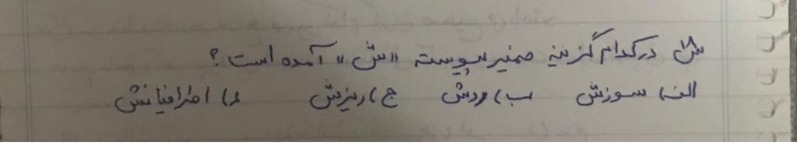 س۸ در کدام گزینه ضمیر پیوسته «ش» آمده است؟
الف) سوزش ب) روش ج) ریزش د) اطرافیانش